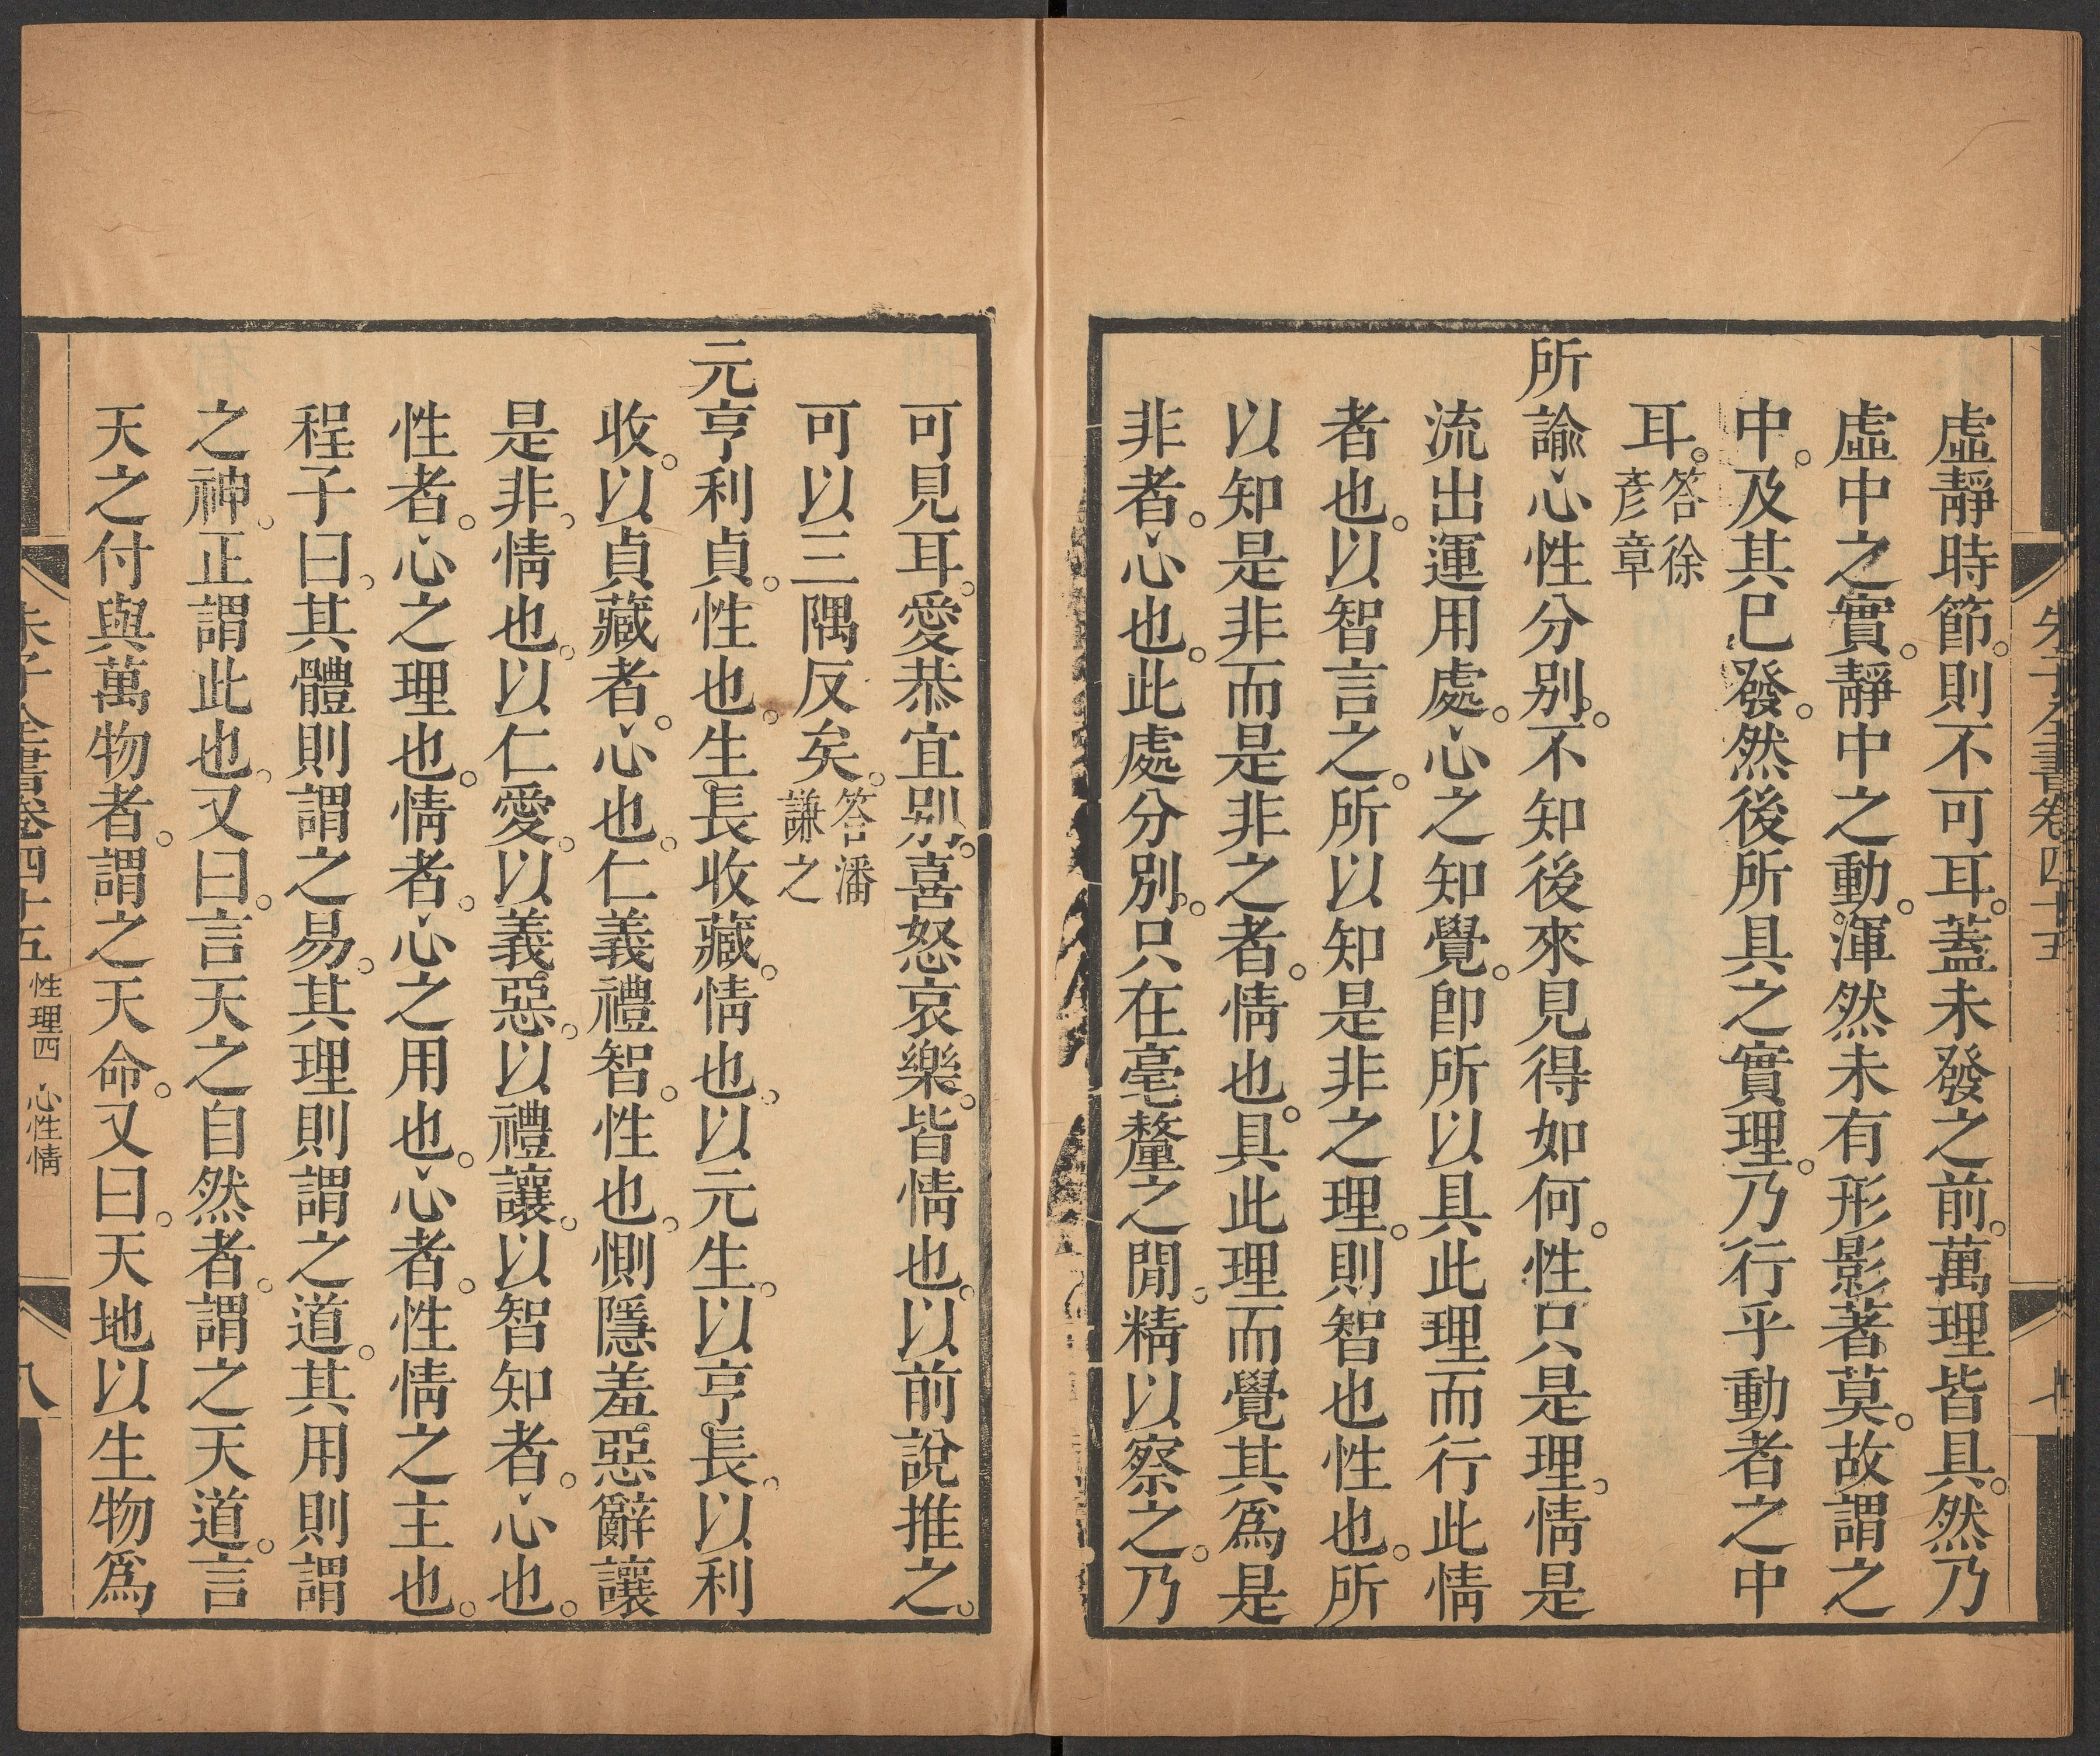 朱子全書卷四十五
七
虛靜時節。則不可耳。蓋未發之前。萬理皆具。然乃
虛中之實。靜中之動。渾然未有形影著莫。故謂之
中。及其已發。然後所具之實理。乃行乎動者之中
耳。答徐彥章
所諭心性分別。不知後來見得如何。性只是理。情是
流出運用處。心之知覺。卽所以具此理而行此情
者也。以智言之。所以知是非之理。則智也性也。所
以知是非而是非之者。情也。具此理而覺其爲是
非者。心也。此處分別。只在毫釐之閒。精以察之。乃
可見耳。愛恭宜別。喜怒哀樂。皆情也。以前說推之。
可以三隅反矣。答潘謙之
元亨利貞。性也。生長收藏。情也。以元生。以亨長。以利
收。以貞藏者。心也。仁義禮智。性也。惻隱羞惡辭讓
是非。情也。以仁愛。以義惡。以禮讓。以智知者。心也。
性者。心之理也。情者。心之用也。心者。性情之主也。
程子曰。其體則謂之易。其理則謂之道。其用則謂
之神。正謂此也。又曰。言天之自然者。謂之天道。言
天之付與萬物者。謂之天命。又曰。天地以生物爲
朱子全書卷四十五 性理四 心性情
八